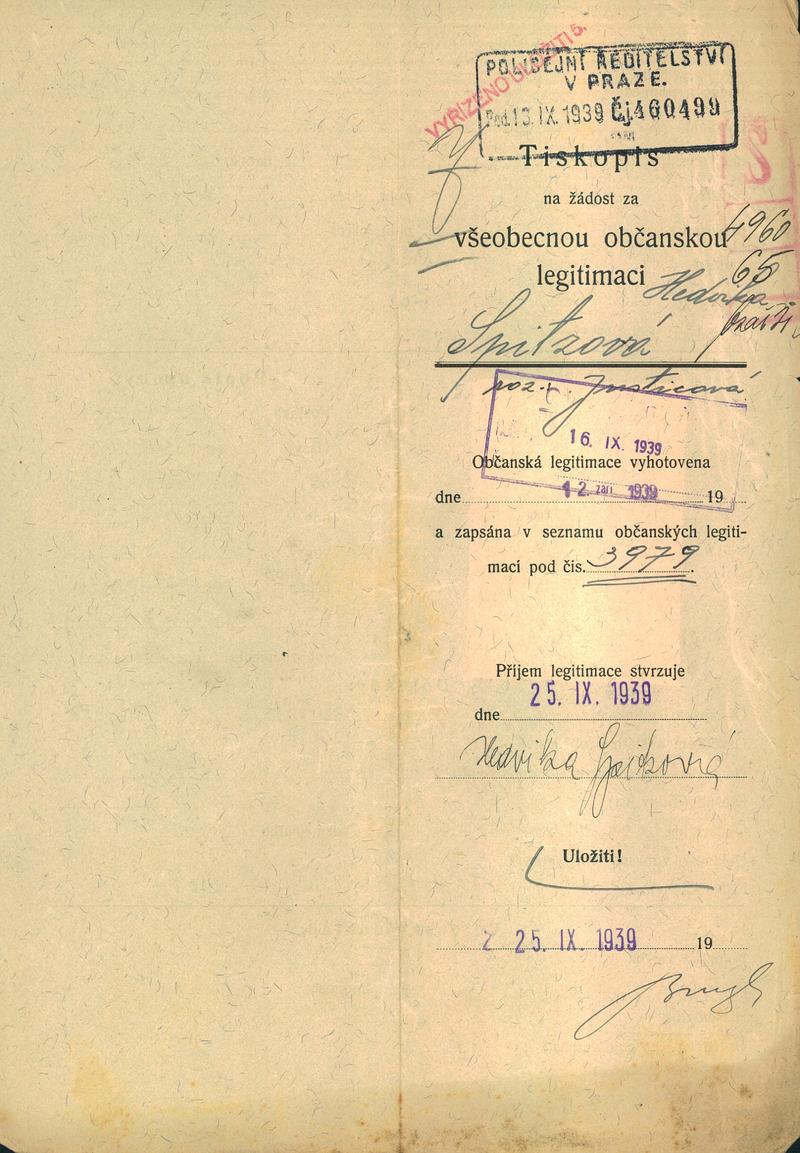 VYŘÍZENO ULOŽITI 5.
POLICEJNÍ ŘEDITELSTVÍ
V PRAZE.
13. IX. 1939 Čj. 460499
Tiskopis
na žádost za
všeobecnou občanskou 4960
legitimaci 65
Hedvika
Spitzová
roz. Justicová
16. IX. 1939
Občanská legitimace vyhotovena
dne 12. září 1939 19
a zapsána v seznamu občanských legiti-
mací pod čís. 3979.
Příjem legitimace stvrzuje
25. IX. 1939
dne
Hedvika Spitzová
Uložiti!
25. IX. 1939 19